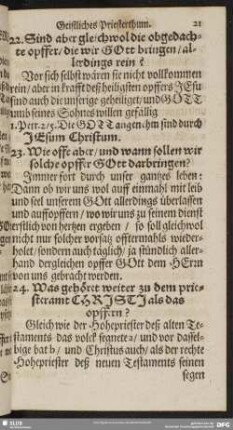 Geistliches Priesterthum. 21
22. Sind aber gleichwol die obgedach-
te opffer / die wir GOtt bringen / al-
lerdings rein ?
Vor sich selbst wären sie nicht vollkommen
rein / aber in krafft deß heiligsten opffers JEsu
sind auch die unserige geheiliget / und GOTT
umb seines Sohnes willen gefällig
1. Petr. 2/5. Die GOTT angenehm sind durch
JEsum Christum.
23. Wie offt aber / und wann sollen wir
solche opffer GOtt darbringen?
Immer fort durch unser gantzes leben:
Dann ob wir uns wol auff einmahl mit leib
und seel unserem GOtt allerdings überlassen
und auffopffern / wo wir uns zu seinem dienst
erstlich von hertzen ergeben / so soll gleichwol
nicht nur solcher vorsatz offtermahls wieder-
holet / sondern auch täglich / ja stündlich aller-
hand dergleichen opffer GOtt dem HErrn
von uns gebracht werden.
24. Was gehöret weiter zu dem prie-
steramt CHRISTI als das
opffern ?
Gleich wie der Hohepriester deß alten Te-
staments das volck segnete a / und vor dassel-
bige bat b / und Christus auch / als der rechte
Hohepriester deß neuen Testaments seinen
segen
SLUB
DFG